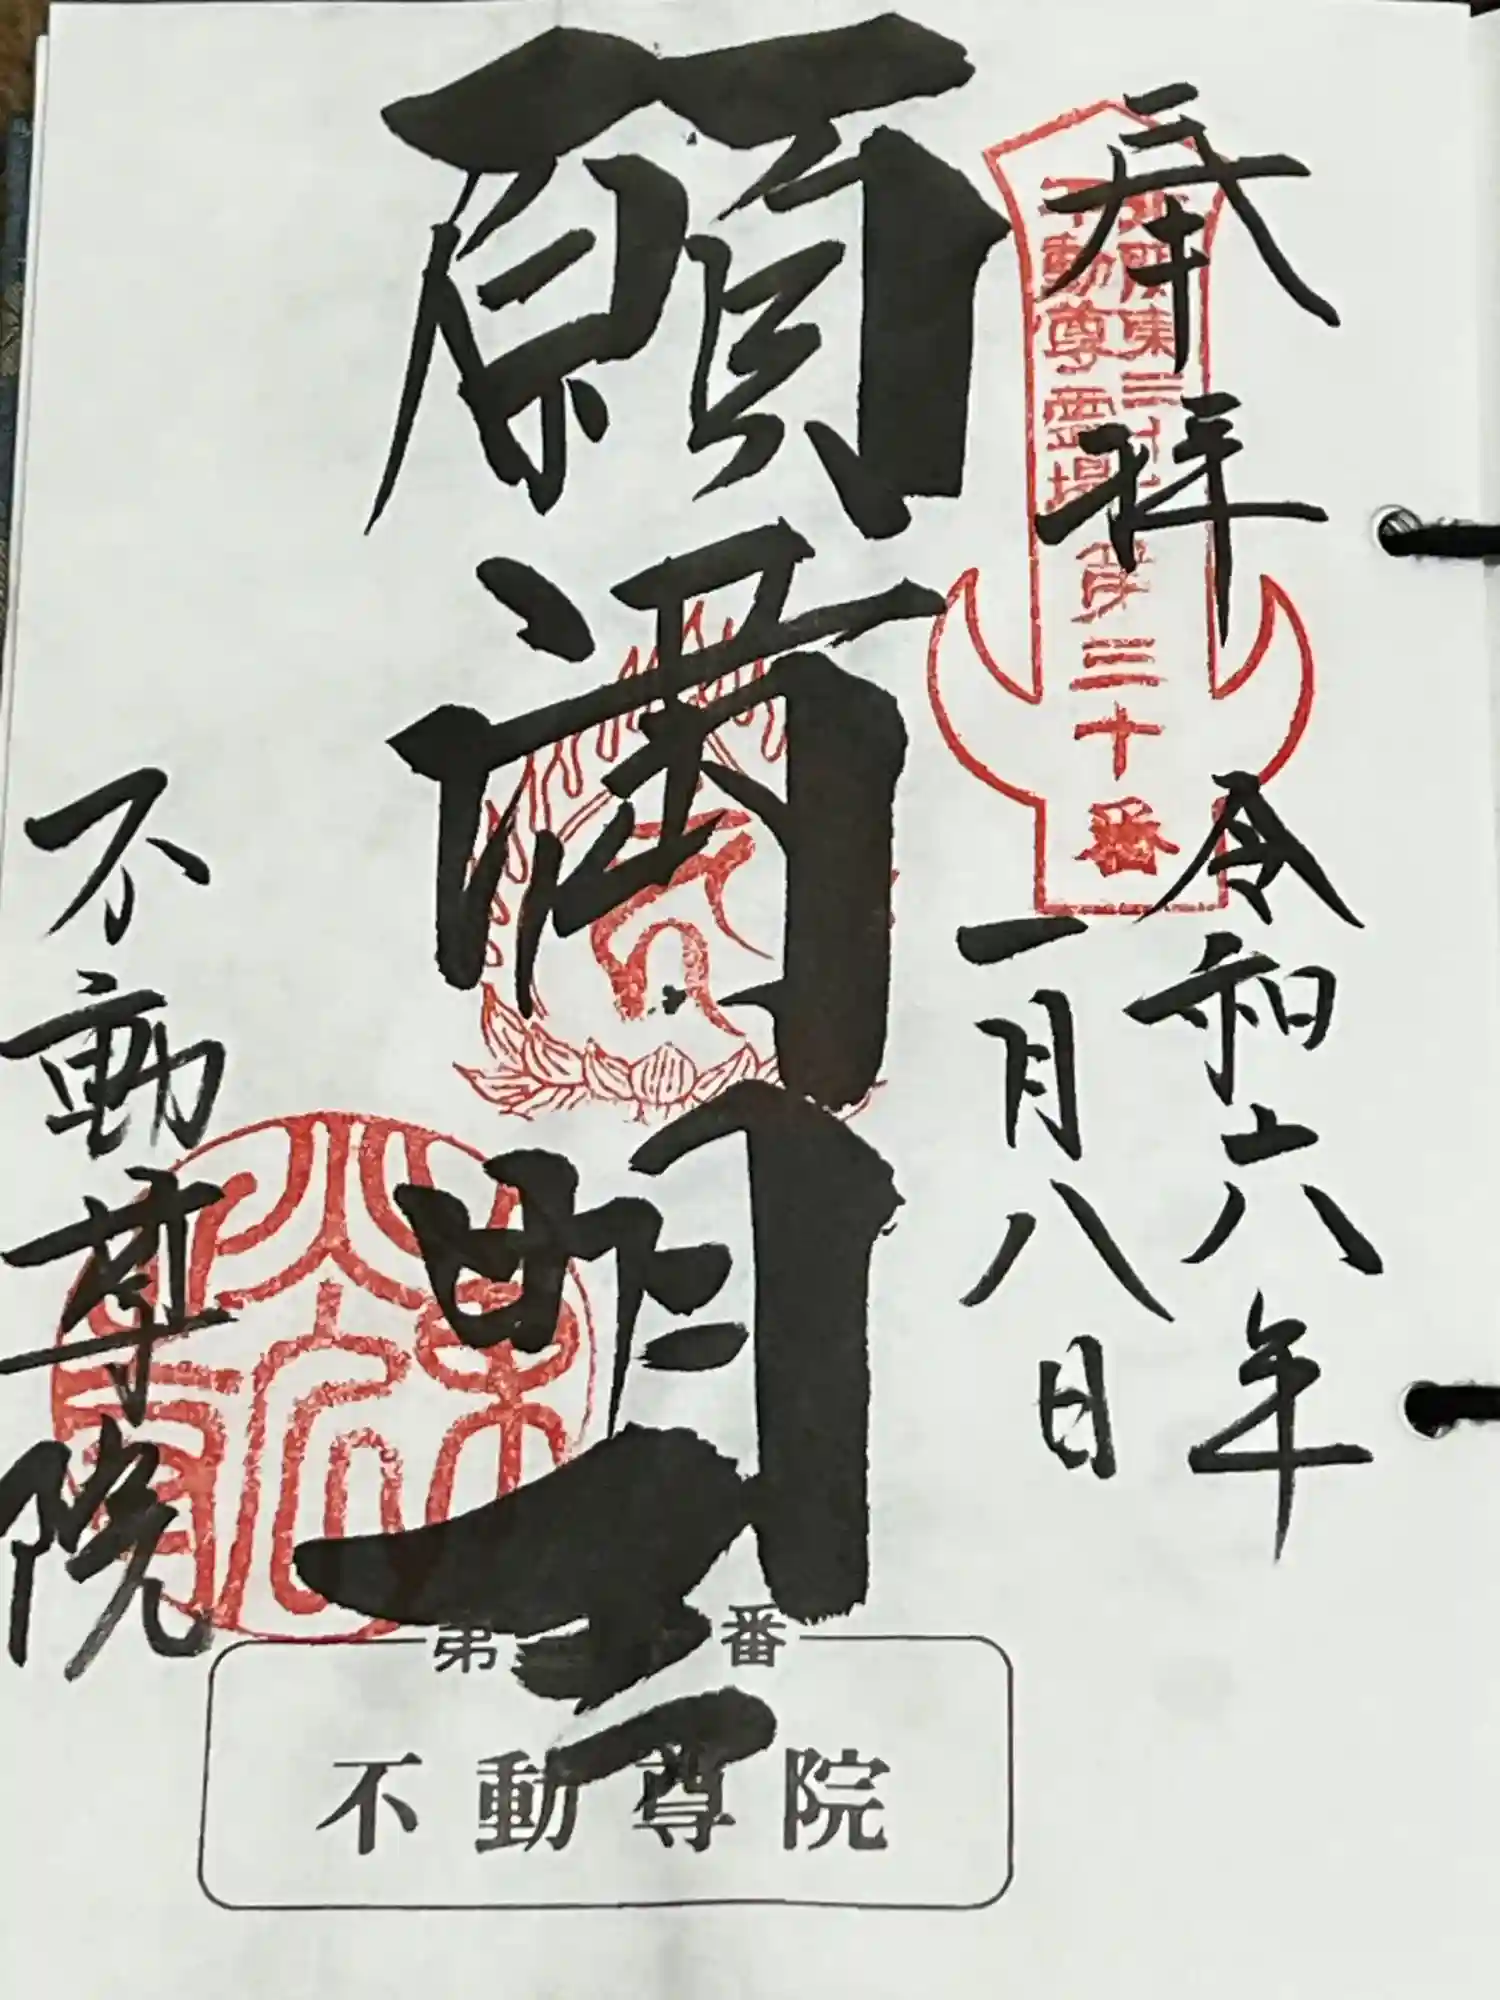 奉拝
北関東三十六
不動尊霊場
第三十番
令和六年
一月八日
願満明王
不動尊院
第 番
不動尊院